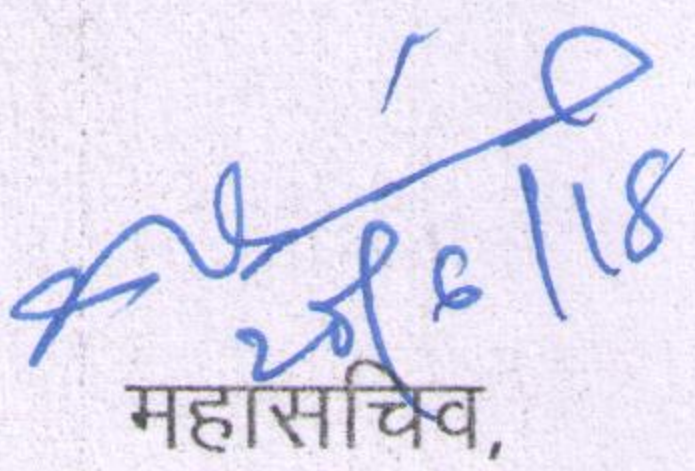 20/6/18
महासचिव,